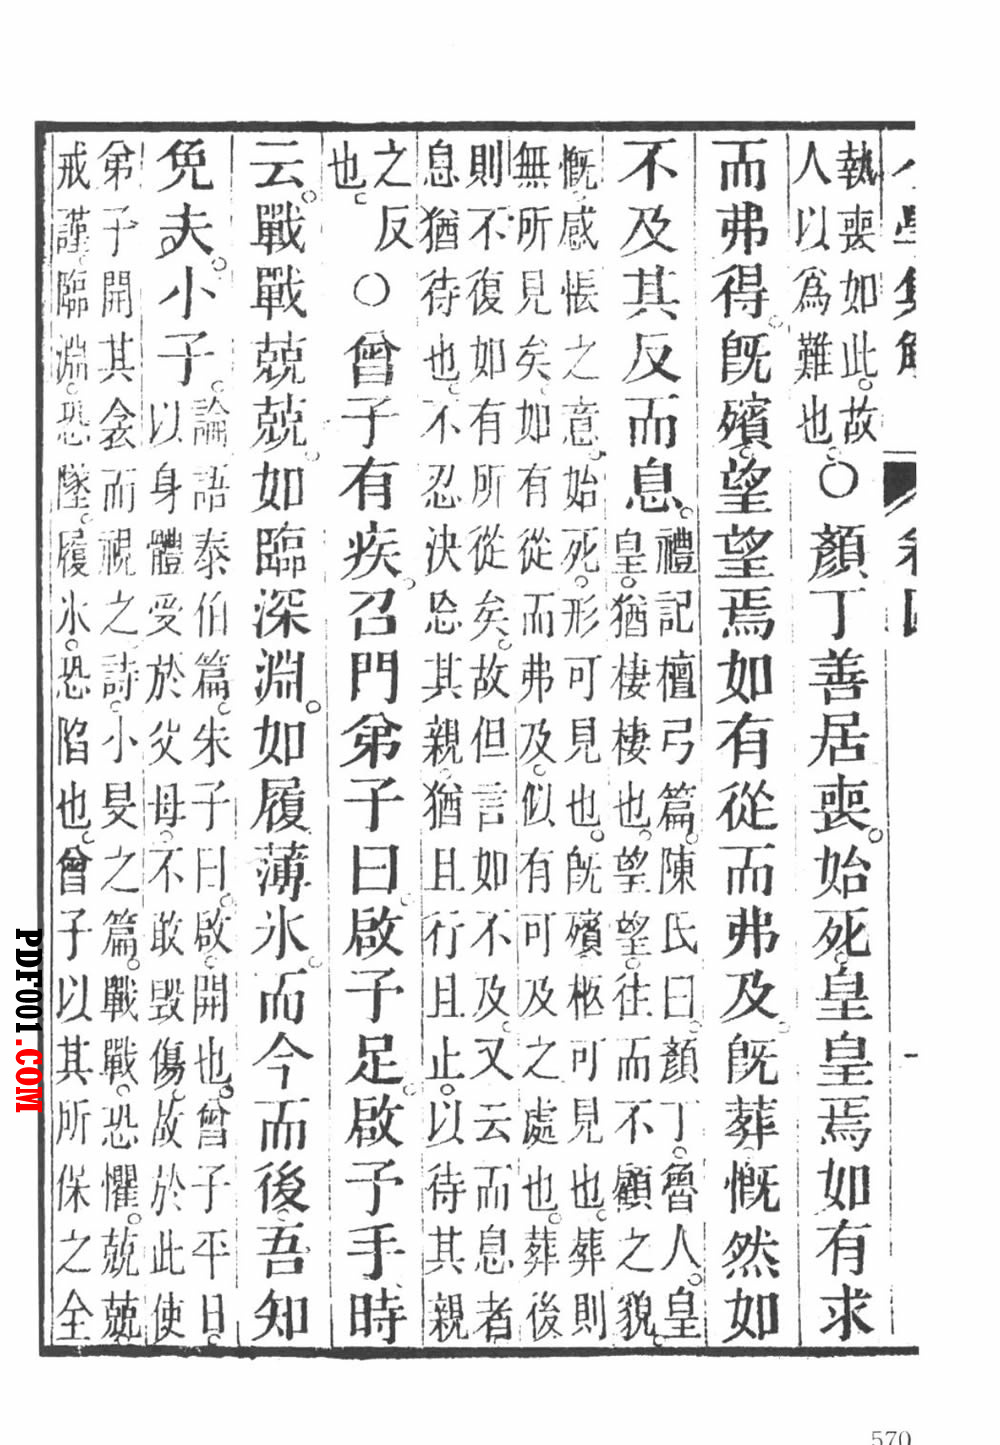 執喪如此。故
人以為難也。
○顏丁善居喪。始死。皇皇焉如有求
而弗得。旣殯。望望焉如有從而弗及。旣葬。慨然如
不及其反而息。
禮記檀弓篇。陳氏曰。顏丁。魯人。皇
皇。猶棲棲也。望望。往而不顧之貌。
慨。感悵之意。始死。形可見也。旣殯。柩可見也。葬則
無所見矣。如有從而弗及。似有可及之處也。葬後
則不復如有所從矣。故但言如不及。又云而息者
息猶待也。不忍決忘其親。猶且行且止。以待其親
之反
也。
○曾子有疾。召門弟子曰。啟予足。啟予手。時
云。戰戰兢兢。如臨深淵。如履薄冰。而今而後。吾知
免夫。小子。
論語泰伯篇。朱子曰。啟。開也。曾子平日。
以身體受於父母。不敢毀傷。故於此使
弟子開其衾而視之。詩。小旻之篇。戰戰。恐懼。兢兢。
戒謹。臨淵。恐墜。履冰。恐陷也。曾子以其所保之全
PDF001.COM
570